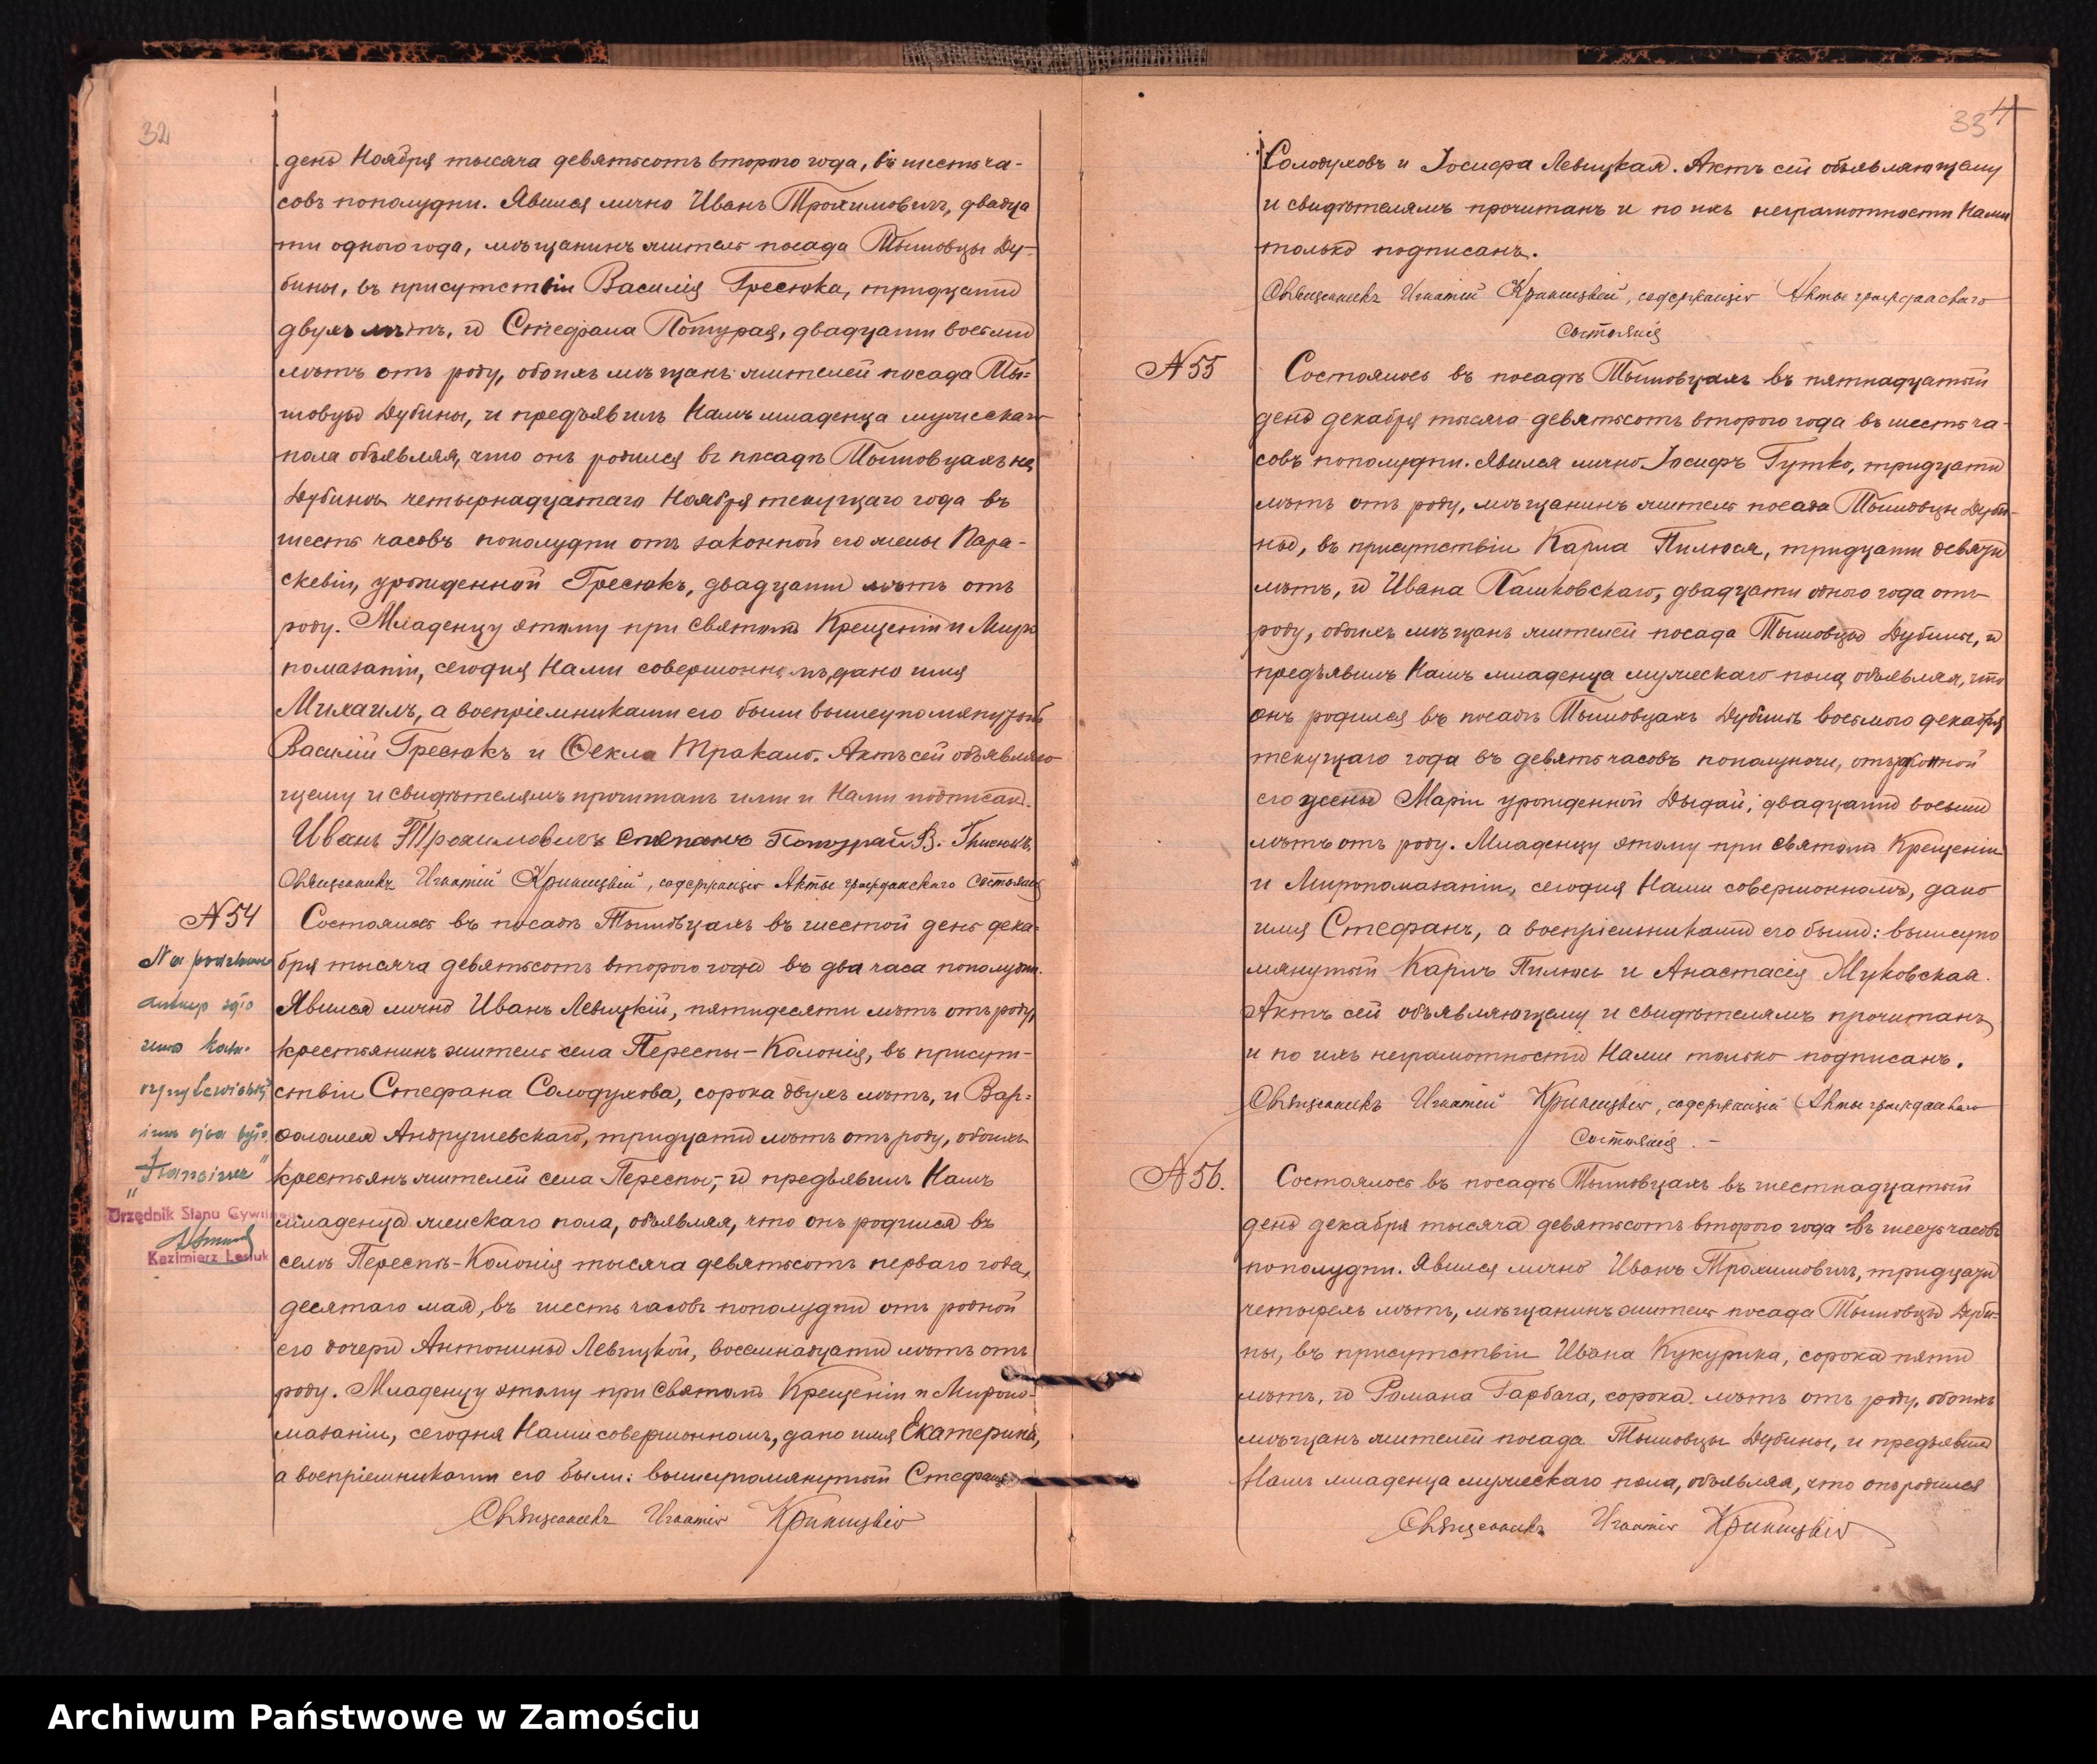 32
день Ноября тысяча девятьсотъ второго года, въ шесть ча-
совъ пополудни. Явился лично Иванъ Трохимовичъ, двадца
ти одного года, мѣщанинъ житель посада Тышовцы Ду-
бины, въ присутствіи Василія Гресюка, тридцати
двухъ лѣтъ, и Стефана Потурая, двадцати восьми
лѣтъ отъ роду, обоихъ мѣщанъ жителей посада Ты=
шовцы Дубины, и предъявилъ Намъ младенца мужескаго
пола объявляя, что онъ родился въ посадѣ Тышовцахъ на
Дубинѣ четырнадцатаго Ноября текущаго года въ
шесть часовъ пополудни отъ законной его жены Пара-
скевіи, урожденной Гресюкъ, двадцати лѣтъ отъ
роду. Младенцу этому при Святомъ Крещеніи и Миро
помазаніи, сегодня Нами совершонномъ, дано имя
Михаилъ, а воспріемниками его были вышеупомянутый
Василій Гресюкъ и Ѳекла Тракало. Актъ сей объявляю
щему и свидѣтелямъ прочитанъ ими и Нами подписанъ.
Иванъ Трохимовичъ Степанъ Потурай В.
Священникъ Игнатій Криницкій, содержащій Акты гражданскаго Состоянія
N 54
Состоялось въ посадѣ Тышовцахъ въ шестой день дека=
бря тысяча девятьсотъ второго года въ два часа пополудни.
Явился лично Иванъ Левицкій, пятидесяти лѣтъ отъ роду,
крестьянинъ житель села Переспы-Колонія, въ присут-
ствіи Стефана Солодухова, сорока двухъ лѣтъ, и Вар=
ѳоломея Андрушевскаго, тридцати лѣтъ отъ роду, обоихъ
крестьянъ жителей села Переспы, и предъявилъ Намъ
младенца женскаго пола, объявляя, что онъ родился въ
селѣ Переспѣ-Колонія тысяча девятьсотъ перваго года,
десятаго мая, въ шесть часовъ пополудни отъ родной
его дочери Антонины Левицкой, восемнадцати лѣтъ отъ
роду. Младенцу этому при Святомъ Крещеніи и Миропо-
мазаніи, сегодня Нами совершонномъ, дано имя Екатерина,
а воспріемниками его были: вышеупомянутый Стефанъ
Священникъ Игнатій Криницкій
Na podstawie
imię ojca było
Urzędnik Stanu Cywilnego
Kazimierz Lesiuk
33
Солодуховъ и Іосифа Левицкая. Актъ сей объявляющему
и свидѣтелямъ прочитанъ и по ихъ неграмотности Нами
только подписанъ.
Священникъ Игнатій Криницкій, содержащій Акты гражданскаго
Состоянія
N 55
Состоялось въ посадѣ Тышовцахъ въ пятнадцатый
день декабря тысяча девятьсотъ второго года въ шесть ча-
совъ пополудни. Явился лично Іосифъ Гутко, тридцати
лѣтъ отъ роду, мѣщанинъ житель посада Тышовцы Дуби-
ны, въ присутствіи Карла Пилюся, тридцати девяти
лѣтъ, и Ивана Пашковскаго, двадцати одного года отъ
роду, обоихъ мѣщанъ жителей посада Тышовцы Дубины, и
предъявилъ Намъ младенца мужескаго пола, объявляя, что
онъ родился въ посадѣ Тышовцахъ Дубинѣ восьмого декабря
текущаго года въ девять часовъ пополуночи, отъ законной
его жены Маріи урожденной Дыдай, двадцати восьми
лѣтъ отъ роду. Младенцу этому при Святомъ Крещеніи
и Миропомазаніи, сегодня Нами совершонномъ, дано
имя Стефанъ, а воспріемниками его были: вышеупо
мянутый Карлъ Пилюсь и Анастасія Муковская.
Актъ сей объявляющему и свидѣтелямъ прочитанъ
и по ихъ неграмотности Нами только подписанъ.
Священникъ Игнатій Криницкій, содержащій Акты гражданскаго
Состоянія. -
N 56.
Состоялось въ посадѣ Тышовцахъ въ шестнадцатый
день декабря тысяча девятьсотъ второго года въ шесть часовъ
пополудни. Явился лично Иванъ Трохимовичъ, тридцати
четырехъ лѣтъ, мѣщанинъ житель посада Тышовцы Дуби-
ны, въ присутствіи Ивана Кукурика, сорока пяти
лѣтъ, и Романа Гарбача, сорока лѣтъ отъ роду, обоихъ
мѣщанъ жителей посада Тышовцы Дубины, и предъявилъ
Намъ младенца мужескаго пола, объявляя, что онъ родился
Священникъ Игнатій Криницкій
Archiwum Państwowe w Zamościu